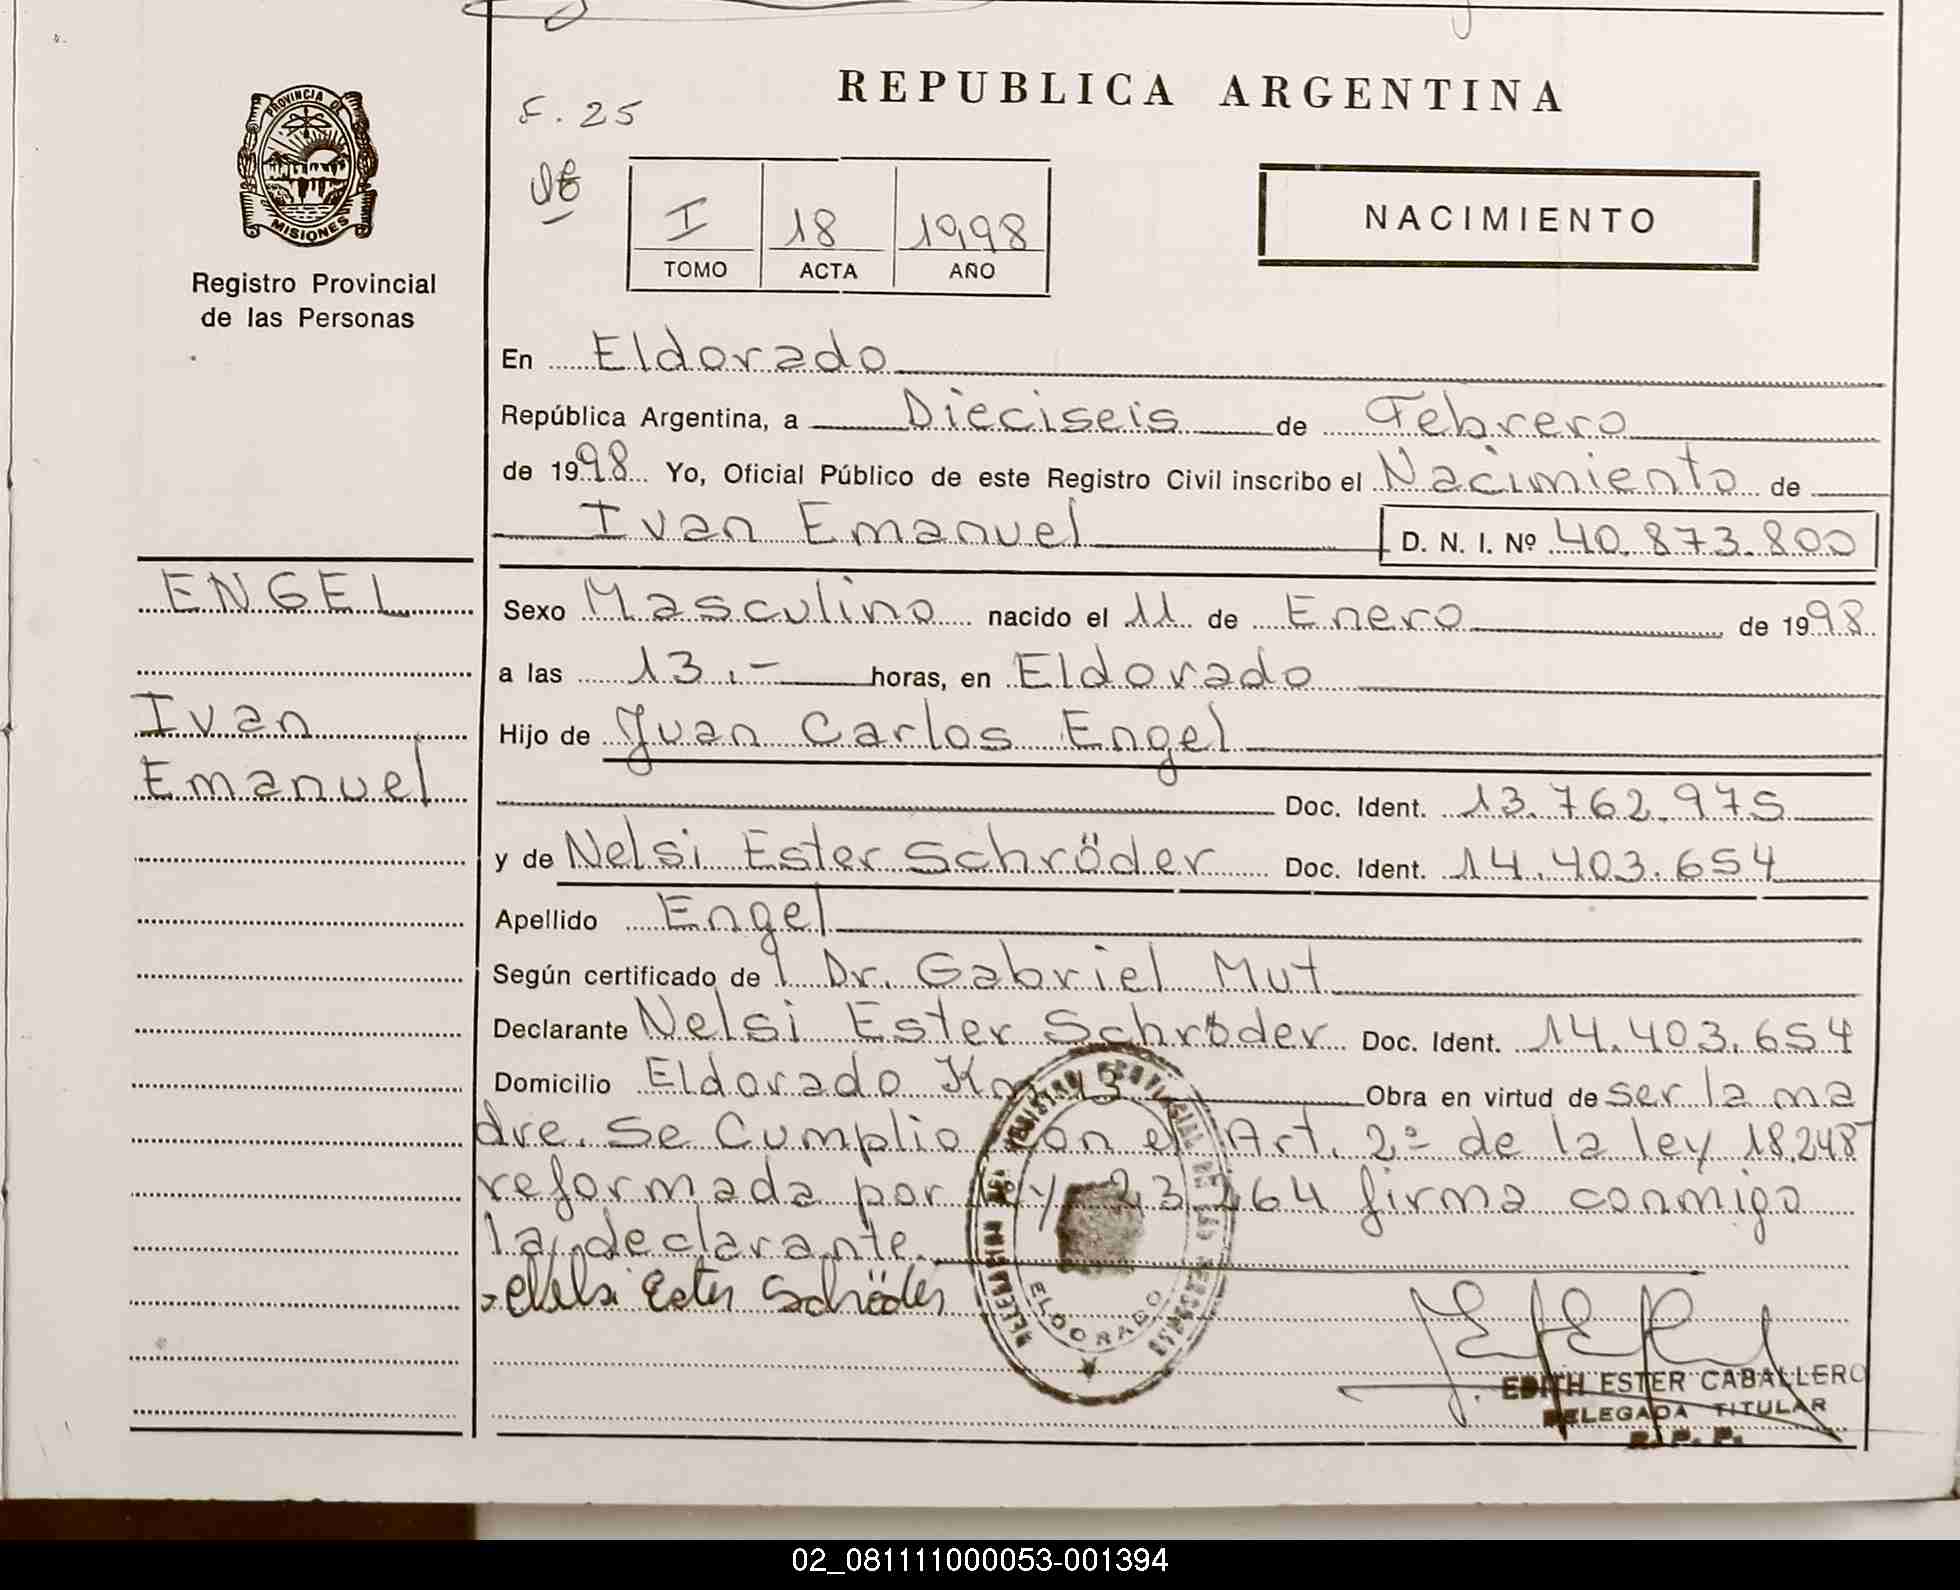 REPUBLICA ARGENTINA
PROVINCIA DE
MISIONES
Registro Provincial
de las Personas
F. 25
I 18 1998
TOMO ACTA AÑO
NACIMIENTO
En Eldorado
República Argentina, a Dieciseis de Febrero
de 1998 Yo, Oficial Público de este Registro Civil inscribo el Nacimiento de
Ivan Emanuel D. N. I. Nº 40.873.800
ENGEL
Ivan
Emanuel
Sexo Masculino nacido el 11 de Enero de 1998
a las 13.- horas, en Eldorado
Hijo de Juan Carlos Engel
Doc. Ident. 13.762.975
y de Nelsi Ester Schröder Doc. Ident. 14.403.654
Apellido Engel
Según certificado de l Dr. Gabriel Mut
Declarante Nelsi Ester Schröder Doc. Ident. 14.403.654
Domicilio Eldorado Km 13 Obra en virtud de ser la ma
dre. Se Cumplio con el Art. 2º de la ley 18.248
reformada por ley 23.264 firma conmigo
la declarante.
Nelsi Ester Schröder
ELDORADO
EDITH ESTER CABALLERO
DELEGADA TITULAR
R. P. P.
02_081111000053-001394